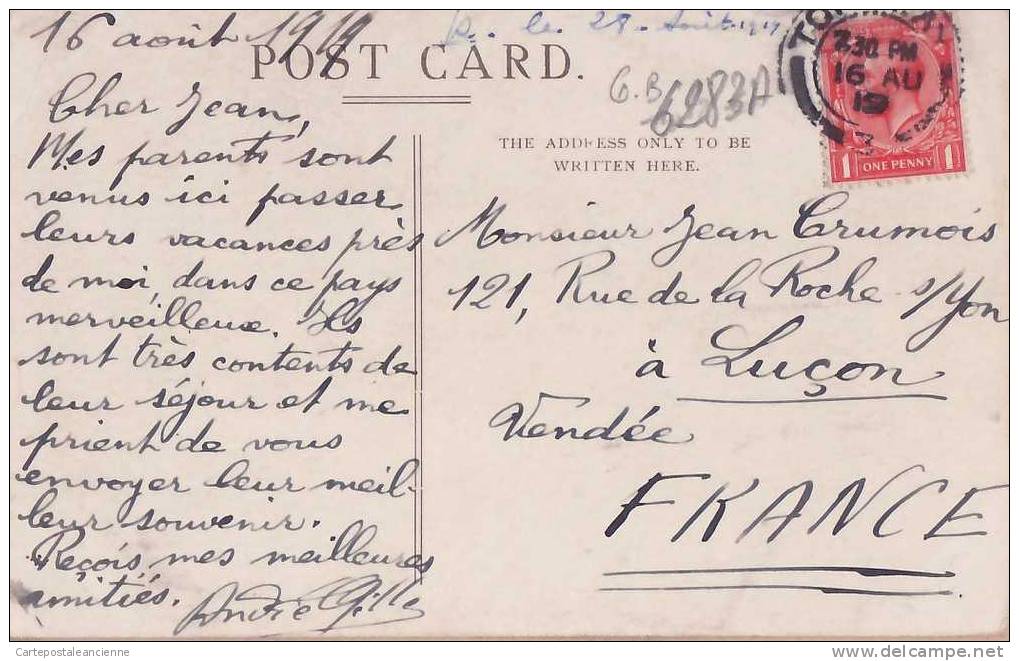 16 août 1919
R. le 28 Août 1919
POST CARD.
G.B
6283A
7.30 PM
16 AU
19
1 ONE PENNY 1
THE ADDRESS ONLY TO BE
WRITTEN HERE.
Cher Jean,
Mes parents sont
venus ici passer
leurs vacances près
de moi, dans ce pays
merveilleux. Ils
sont très contents de
leur séjour et me
prient de vous
envoyer leur meil-
leur souvenir.
Reçois mes meilleures
amitiés.
André Gille
Monsieur Jean Crumois
121, Rue de la Roche s/Yon
à Luçon
Vendée
FRANCE
Cartepostaleancienne
www.delcampe.net